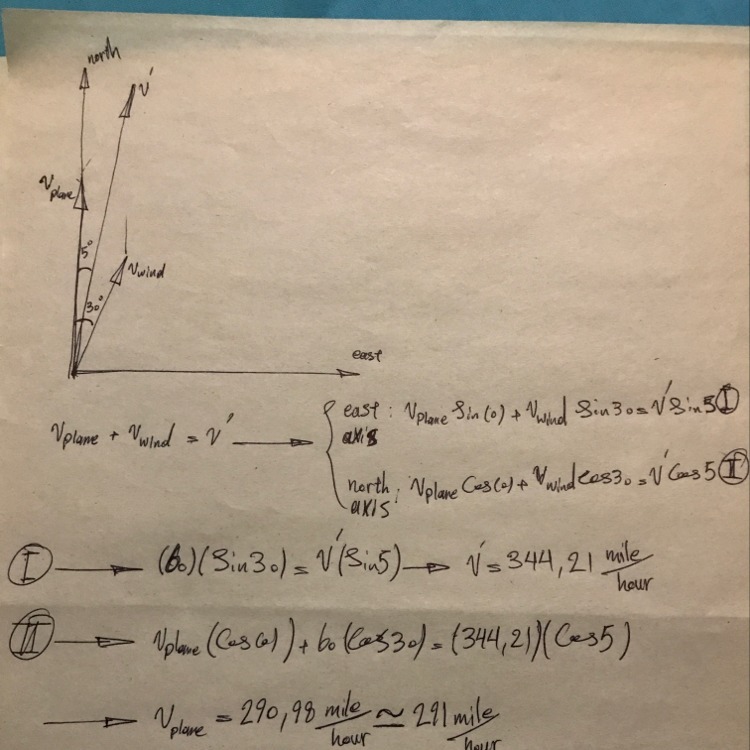 north
V'
Vplane
5°
Vwind
30°
east
Vplane + Vwind = V' → { east axis : Vplane Sin(0) + Vwind Sin30 = V' Sin5 Ⅰ
north axis : Vplane Cos(0) + Vwind Cos30 = V' Cos5 Ⅱ
Ⅰ → (60)(Sin30) = V'(Sin5) → V' = 344,21 mile/hour
Ⅱ → Vplane (Cos(0)) + 60 (Cos30) = (344,21)(Cos5)
→ Vplane = 290,98 mile/hour ≃ 291 mile/hour